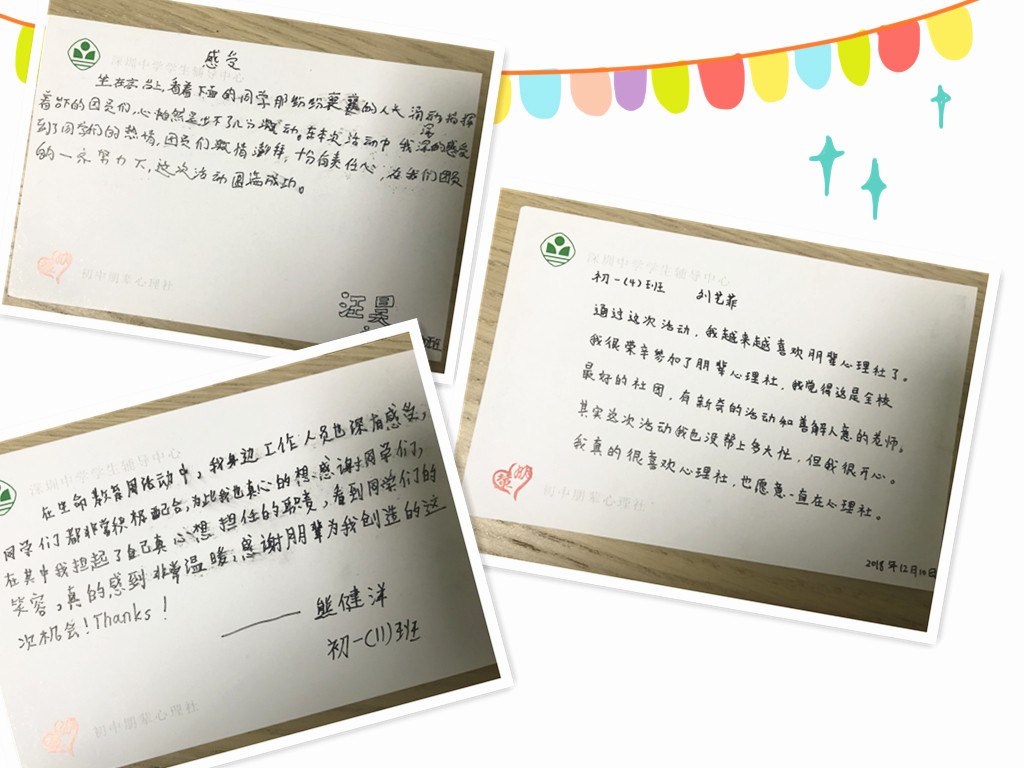 深圳中学学生辅导中心
感受
坐在台上,看着下面的同学那纷纷襄襄的人民涌动指挥
着台下的团员们,心怕然是止不了几分激动。在本次活动中我深深的感受
到了同学们的热情,团员们激情澎湃,十分负责任心,在我们团员
的一齐努力下,这次活动圆满成功。
初中朋辈心理社
汪昊
班
深圳中学学生辅导中心
初一(4)班 刘艺菲
通过这次活动,我越来越喜欢朋辈心理社了。
我很荣幸参加了朋辈心理社,我觉得这是全校
最好的社团,有新奇的活动和善解人意的老师,
其实这次活动我也没帮上多大忙,但我很开心。
我真的很喜欢心理社,也愿意一直在心理社。
初中朋辈心理社
2018年12月10日
深圳中学学生辅导中心
在生命教育周活动中,我身边工作人员也深有感受,
同学们都非常积极配合,为此我也真心的想感谢同学们,
在其中我担起了自己真心想担任的职责,看到同学们的
笑容,真的感到非常温暖,感谢朋辈为我创造的这
次机会!Thanks!
——熊健洋
初一(11)班
初中朋辈心理社